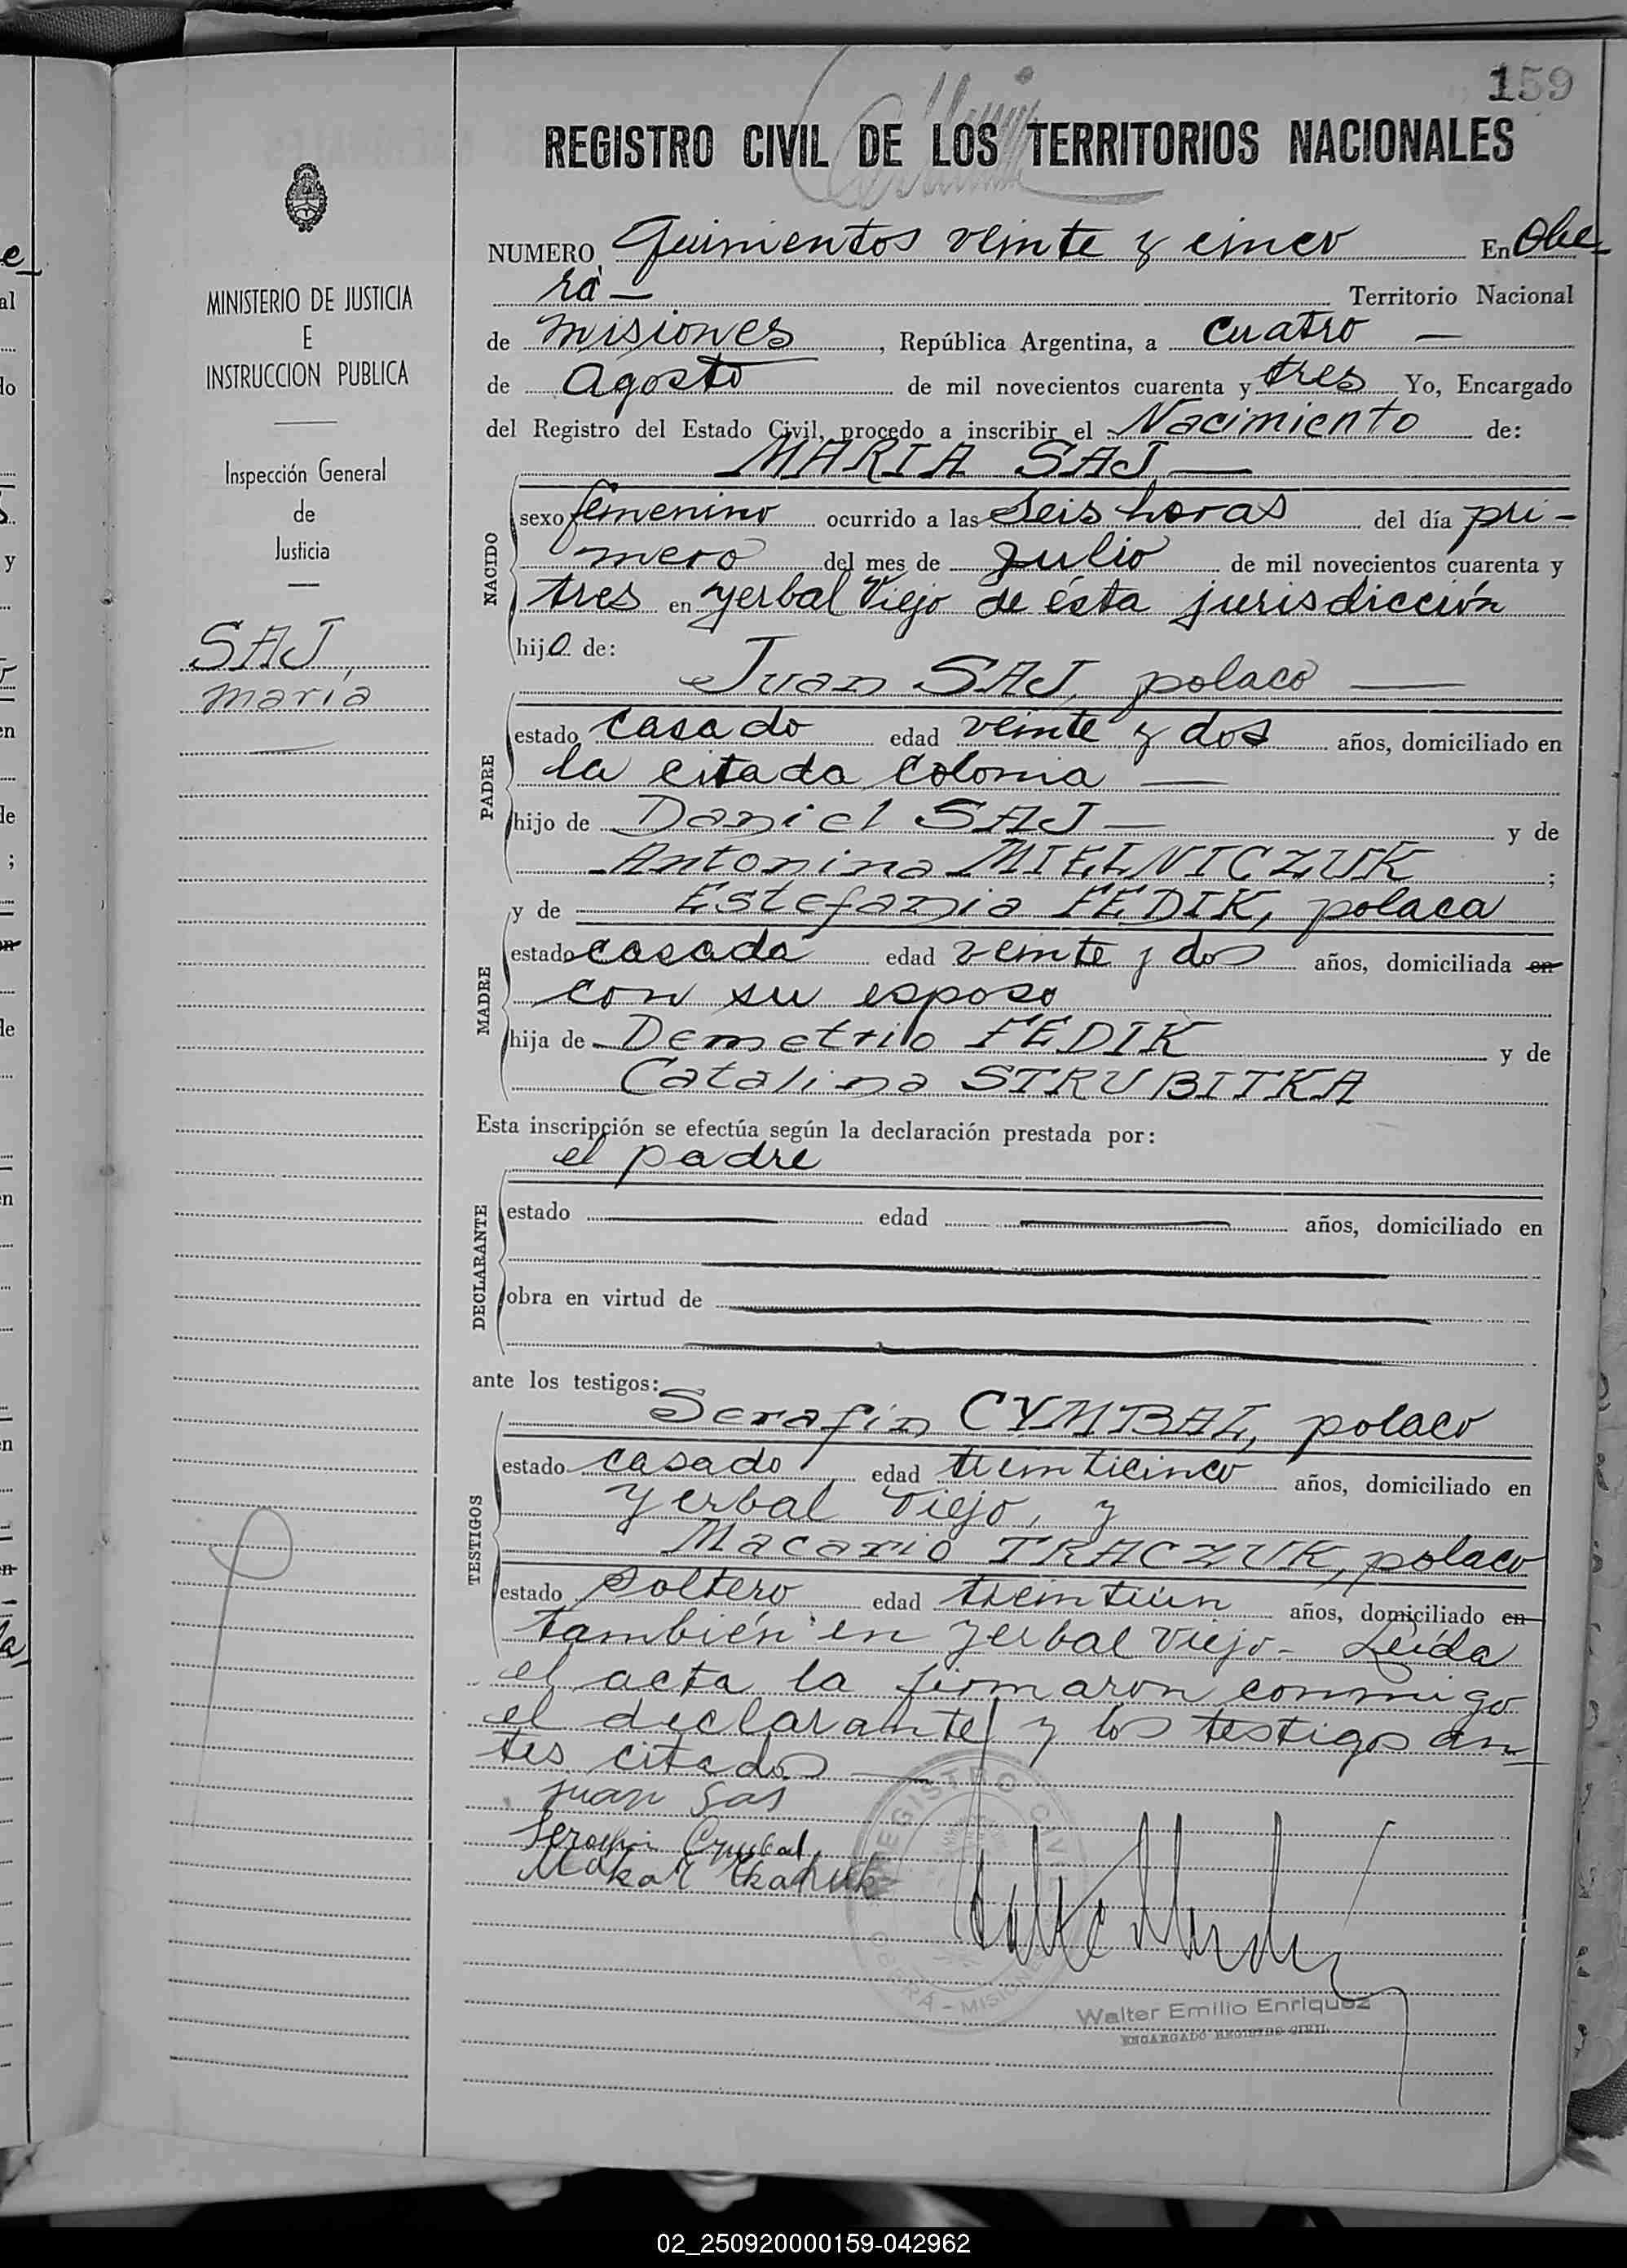 159
REGISTRO CIVIL DE LOS TERRITORIOS NACIONALES
MINISTERIO DE JUSTICIA
E
INSTRUCCION PUBLICA
Inspección General
de
Justicia
SAJ,
maría
NUMERO Quinientos veinte y cinco En Obe-
rá — Territorio Nacional
de misiones, República Argentina, a cuatro —
de agosto de mil novecientos cuarenta y tres Yo, Encargado
del Registro del Estado Civil, procedo a inscribir el Nacimiento de:
MARIA SAJ —
NACIDO
sexo femenino ocurrido a las seis horas del día pri-
mero del mes de julio de mil novecientos cuarenta y
tres en yerbal viejo de ésta jurisdicción
hija de:
Juan SAJ, polaco —
PADRE
estado casado edad veinte y dos años, domiciliado en
la citada colonia —
hijo de Daniel SAJ — y de
Antonina MIELNICZUK ;
y de Estefania FEDIK, polaca
MADRE
estado casada edad veinte y dos años, domiciliada en
con su esposo
hija de Demetrio FEDIK y de
Catalina STRUBITKA
Esta inscripción se efectúa según la declaración prestada por:
el padre
DECLARANTE
estado — edad — años, domiciliado en
obra en virtud de
ante los testigos:
Serafin CYMBAL, polaco
TESTIGOS
estado casado edad treinticinco años, domiciliado en
yerbal viejo, y
Macario TRACZUK, polaco
estado soltero edad treintiún años, domiciliado en
también en yerbal viejo - Leída
el acta la firmaron conmigo
el declarante y los testigos an
tes citados —
juan Sas
Serafin Cymbal
Makar
REGISTRO CIVIL
OBERÁ - MISIONES
Walter Emilio Enriquez
ENCARGADO REGISTRO CIVIL
02_250920000159-042962